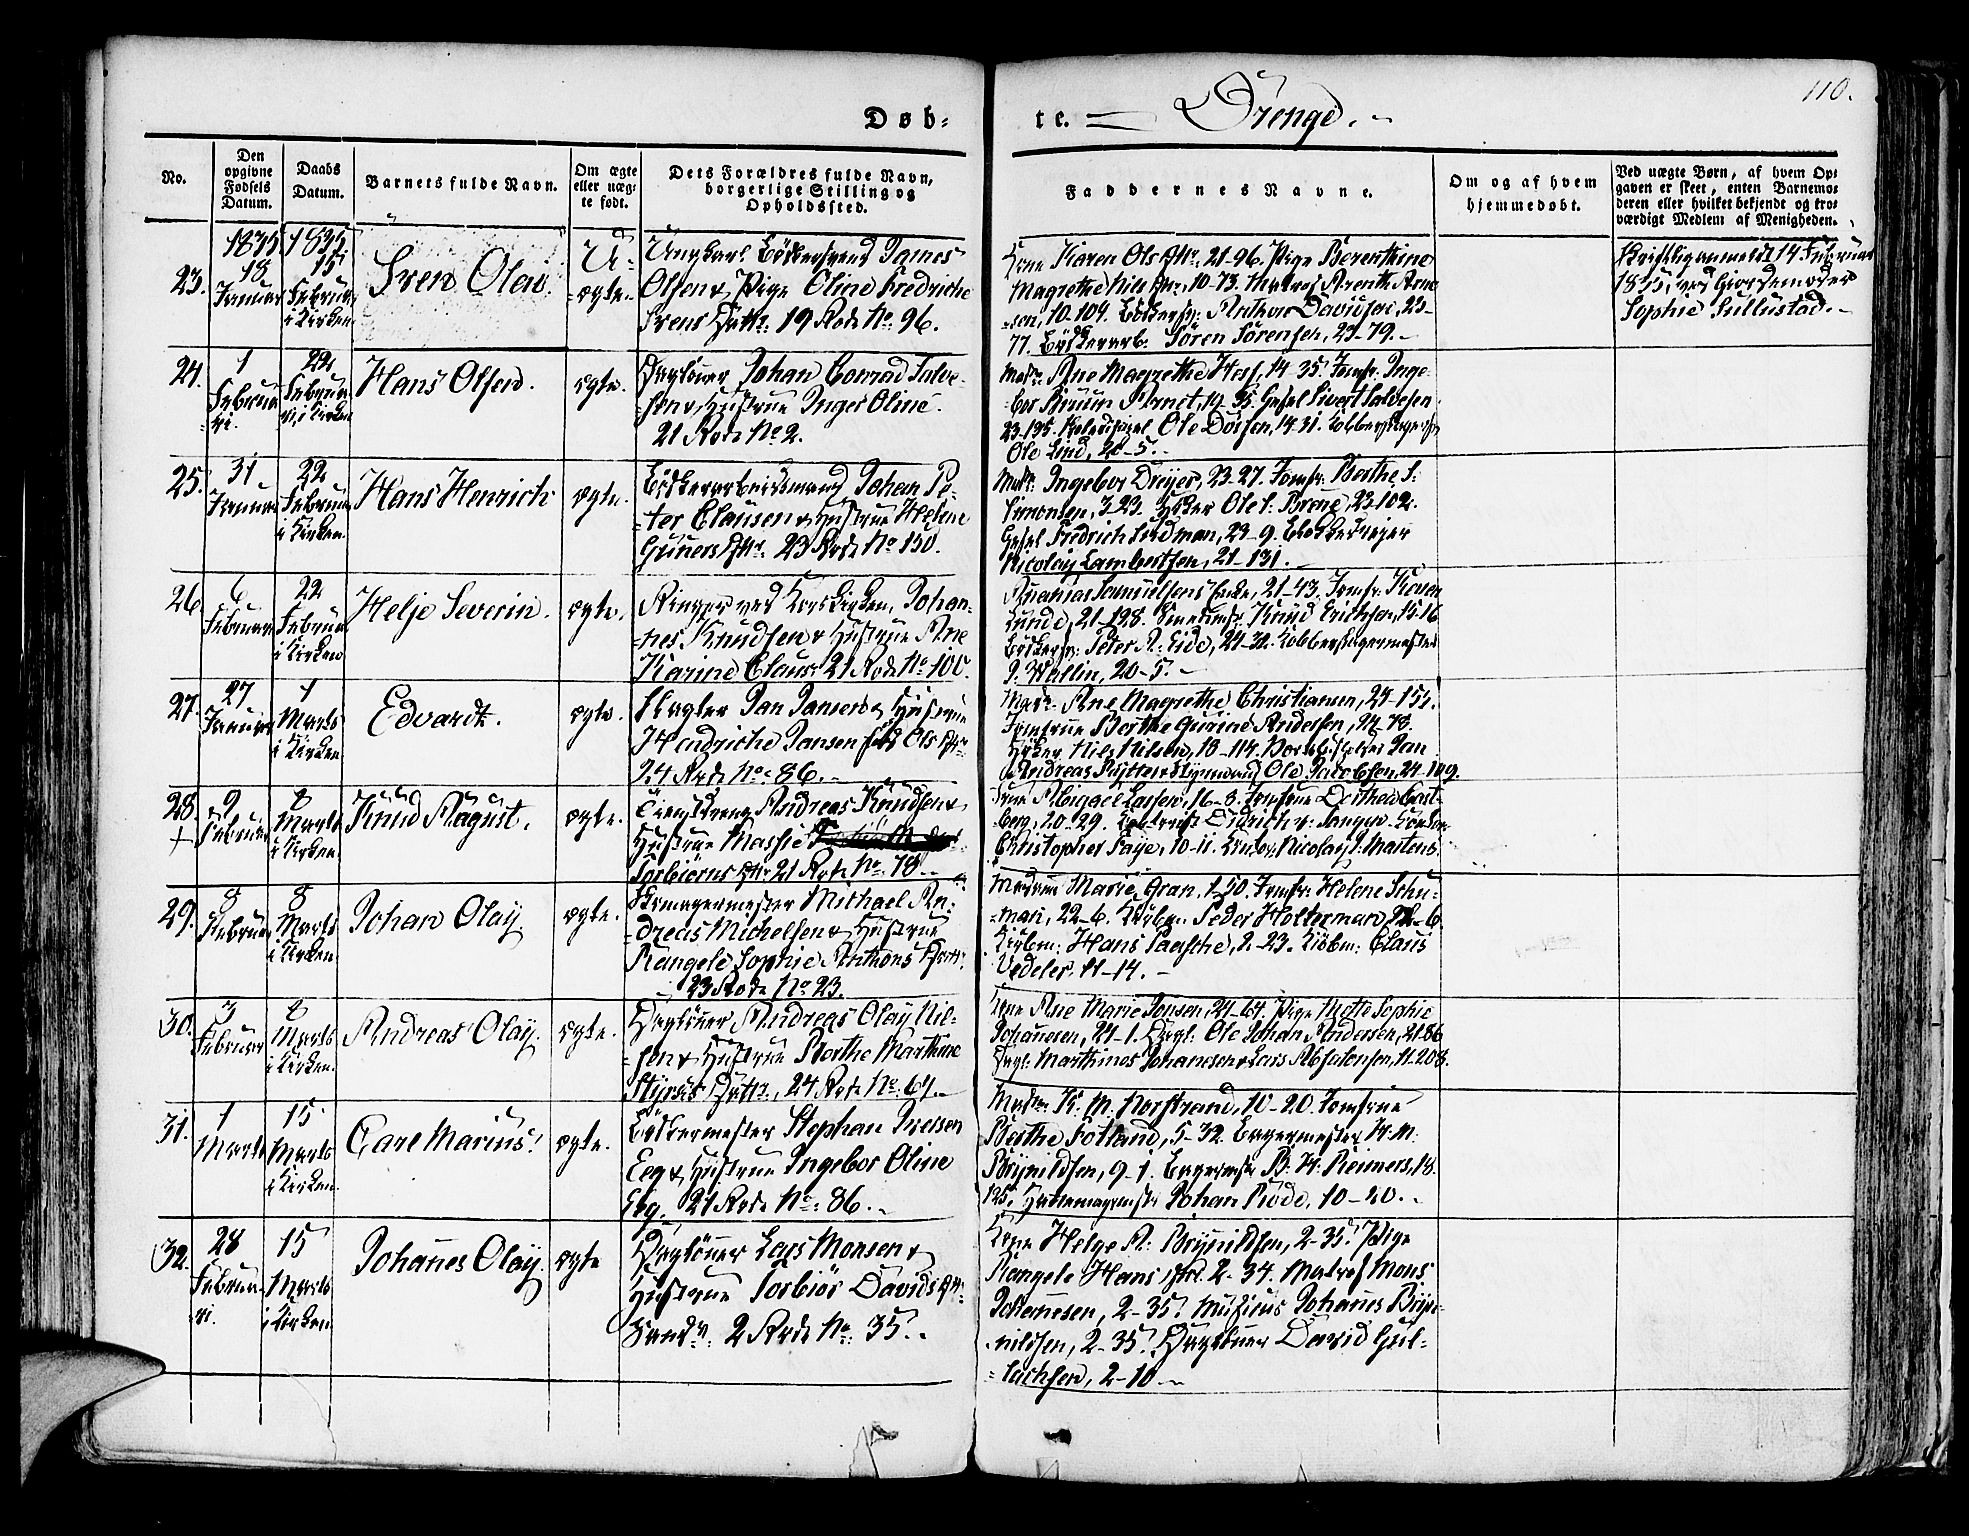 110.
Døb-
te. = Drenge.
No.
Den opgivne Fødsels Datum.
Daabs Datum.
Barnets fulde Navn.
Om ægte eller uægte født.
Dets Forældres fulde Navn, borgerlige Stilling og Opholdssted.
Faddernes Navne.
Om og af hvem hjemmedøbt.
Ved uægte Børn, af hvem Opgaven er skeet, enten Barnemoderen eller hvilket bekjendt og troværdigt Medlem af Menigheden.
23.
1835
18
Januar
1835
15
Februar
i Kirken
Sven Olai
U-
-ægte.
Ungkarl Bödkersvend James
Olsen & Pige Oline Fredriche
Svens Datt: 19 Rode No. 96.
Kone Karen Ols Dtr. 21-96. Pige Berenthine
Magrethe Nils Dtr. 10-73. Matros Arenth Arne
-sen, 10-104. Bödkersv: Anthon Davidsen, 23-
77. Bödkerarb: Sören Sörensen, 23-79.-
Skriftlig anmeldt 14 Februar
1835, ved Giordemoder
Sophie Sullustad.-
24.
1
Februa-
-ri.
22
Februa-
ri, i Kirken
Hans Olsen.
ægte.
Dagløner Johan Conrad Salve-
-sen & Hustrue Inger Oline.
21 Rode No 2.
Mad: Ane Magrethe Hess, 14-35. Jomfr: Inge-
-bor Bruun Arnet, 19-35. Gesel Sivert Salvesen
Ole Lind, 20-5.-
25.
31
Januar
22
Februar
i Kirken
Hans Henrich
ægte.
Bödkerarbeidsmand Johan Pe-
-ter Clausen & Hustrue Helene
Guners Dtr. 23 Rode No 150.
Mad: Ingebor Dreyer, 23-27. Jomfr: Berthe S:
Simonsen, 3-23. Høker Ole I: Brone, 23-102.
Gesel Fredrich Lindman, 23-9.
Nicolay Lambertsen, 21-131.-
26.
6
Februar
22
Februar
i Kirken
Helje Severin.
ægte.
Ringer ved Korskirken, Johan-
-nes Knudsen & Hustrue Ane
Karine Claus: 21 Rode No 100.
Ananias Samuelsens Enke, 21-43. Jomfr: Karen
Lunde, 21-128. Knud Erichsen, 15-16
Bödkersv: Peter A: Eide, 24-32. Kobberslagermester
P. Wallin, 20-5.-
27.
27
Januar
1
Marts
i Kirken
Edvardt.
ægte.
Slagter Jan Jansen & Hustrue
Hendriche Jansen født Ols Dtr
24 Rode No: 86.-
Mad: Ane Magrethe Christiansen, 24-151.
Jomfrue Berthe Gurine Andersen, 14-73.
Høker Nils Nilsen, 13-114. Jan
Andreas Rytter & Styrmand Ole Jacobsen, 24-109.
28.
+
9
Februar
8
Marts
i Kirken
Knud August.
ægte.
Andreas Knudsen &
Hustrue Massie
Torbiörns Dtr 21 Rode No 78.-
Frue Abigael Lassen, 16-3. Jomfrue Dorthea Cast-
berg, 20-29.
Christopher Faye, 10-11. Nicolay I: Martens.
29.
8
Februar
8
Marts
i Kirken
Johan Olay.
ægte.
Skomagermester Michael An-
-dreas Michelsen & Hustrue
Rangele Sophie Anthons Datt:
23 Rode No 23.
Madame Marie Gran, 1-50. Jomfr: Helene Schu-
-man, 22-6. Kiøbm: Peder Holterman, 22-6.
Kiøbm: Hans Paasche, 2-23. Kiøbm: Claus
Vedeler, 11-14.-
30.
3
Februar
8
Marts
i Kirken.
Andreas Olay.
ægte.
Dagløner Andreas Olay Nil-
-sen & Hustrue Berthe Marthine
Styrses Datt:, 24 Rode No: 64.-
Kone Ane Marie Jonsen, 24-64. Pige Mette Sophie
Johanesen, 24-1. Dagl: Ole Johan Andersen, 21-86
Dagl: Marthinus Johanesen & Lars Absalonsen, 11-208.
31.
1
Marts
15
Marts
i Kirken.
Carl Marius.
ægte.
Bödkermester Stephan Iversen
Eeg & Hustrue Ingebor Oline
Eeg. 21 Rode No: 86.-
Mad: K: M: Norstrand, 10-20. Jomfrue
Berthe Fotland, 5-32. Bagermester H: M:
Brynildsen, 9-1. Bagermstr B: H: Reimers, 18.
125. Johan Rode, 10-20.-
32.
28
Februa-
ri.
15
Marts
i Kirken.
Johanes Olay.
ægte
Dagløner Lars Monsen &
Hustrue Torbiör Davids Dtr:
2 Rode No: 35.-
Kone Helge A: Brynildsen, 2-35. Pige
Rangele Hans Dtr. 2-34. Matros Mons
Johanesen, 2-35. Musicus Johanes Bryn-
-nildsen, 2-35. Dagløner David Gul-
-lachsen, 2-10.-